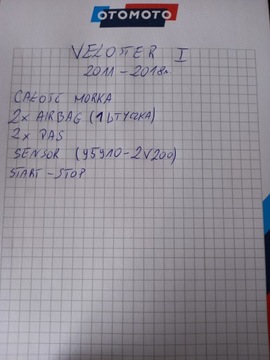 OTOMOTO
VELOSTER I
2011-2018r
CAŁOŚĆ MOKKA
2x AIRBAG (1 WTYCZKA)
2x PAS
SENSOR (95910-2V200)
START-STOP